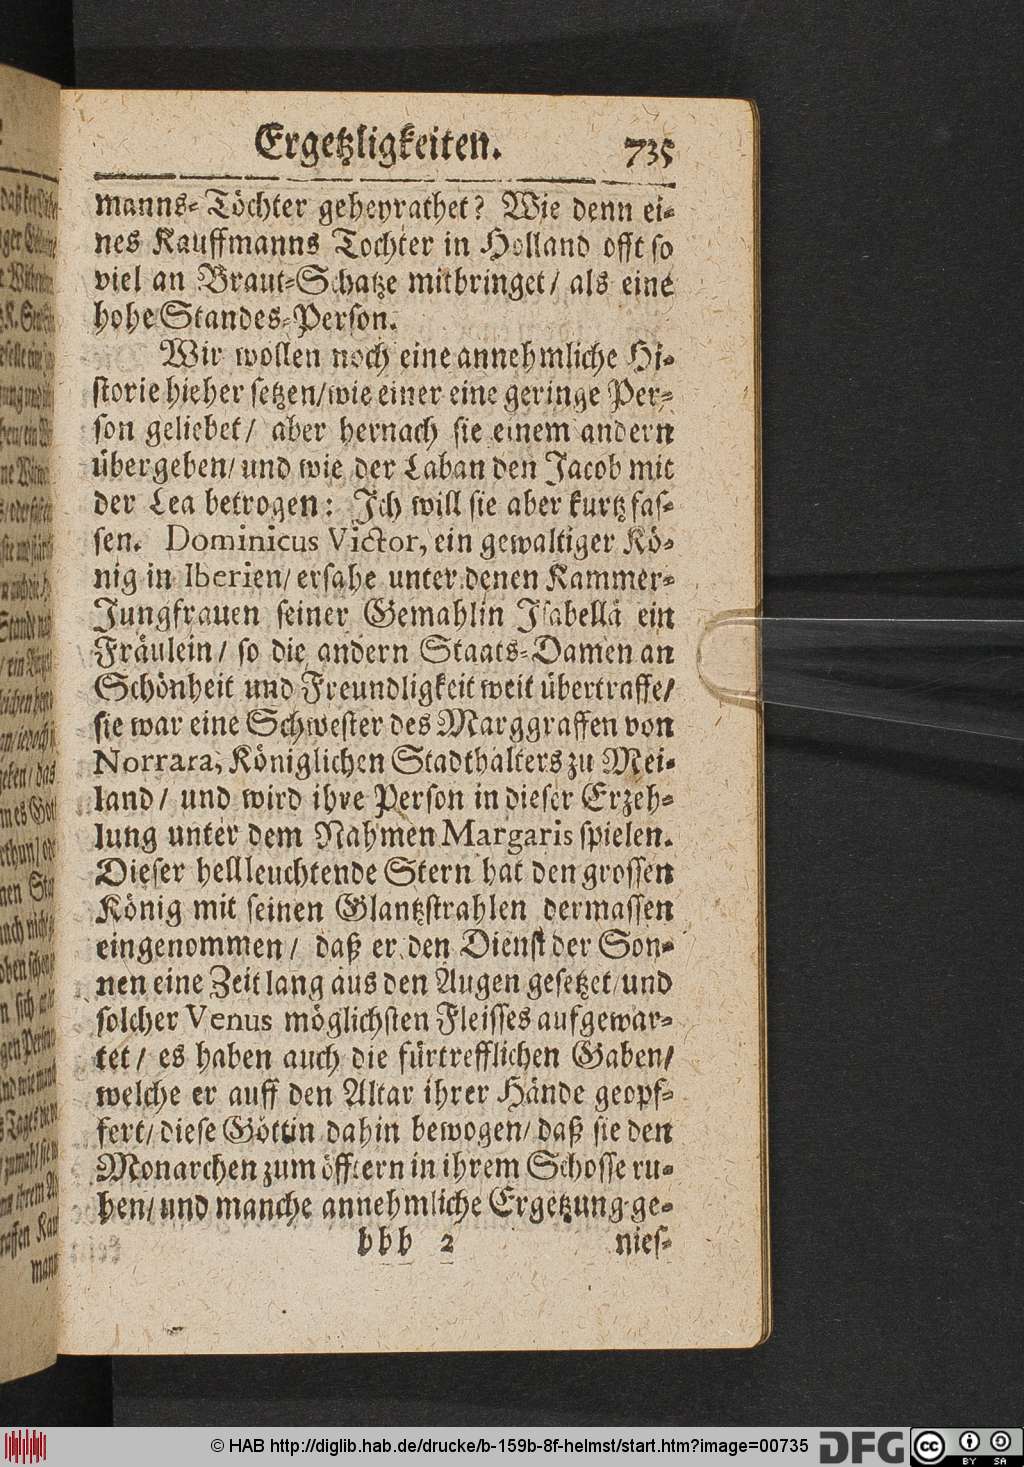 Ergetzligkeiten. 735
manns-Töchter geheyrathet? Wie denn ei-
nes Kauffmanns Tochter in Holland offt so
viel an Braut-Schatze mitbringet/ als eine
hohe Standes-Person.
Wir wollen noch eine annehmliche Hi-
storie hieher setzen/wie einer eine geringe Per-
son geliebet/ aber hernach sie einem andern
übergeben/ und wie der Laban den Jacob mit
der Lea betrogen: Ich will sie aber kurtz fas-
sen. Dominicus Victor, ein gewaltiger Kö-
nig in Iberien/ ersahe unter denen Kammer-
Jungfrauen seiner Gemahlin Isabellä ein
Fräulein/ so die andern Staats-Damen an
Schönheit und Freundligkeit weit übertraffe/
sie war eine Schwester des Marggraffen von
Norrara, Königlichen Stadthalters zu Mei-
land/ und wird ihre Person in dieser Erzeh-
lung unter dem Nahmen Margaris spielen.
Dieser hellleuchtende Stern hat den grossen
König mit seinen Glantzstrahlen dermassen
eingenommen/ daß er den Dienst der Son-
nen eine Zeit lang aus den Augen gesetzet/ und
solcher Venus möglichsten Fleisses aufgewar-
tet/ es haben auch die fürtrefflichen Gaben/
welche er auff den Altar ihrer Hände geopf-
fert/ diese Göttin dahin bewogen/ daß sie den
Monarchen zum öfftern in ihrem Schosse ru-
hen/ und manche annehmliche Ergetzung ge-
bbb 2 nies-
© HAB http://diglib.hab.de/drucke/b-159b-8f-helmst/start.htm?image=00735 DFG cc BY SA